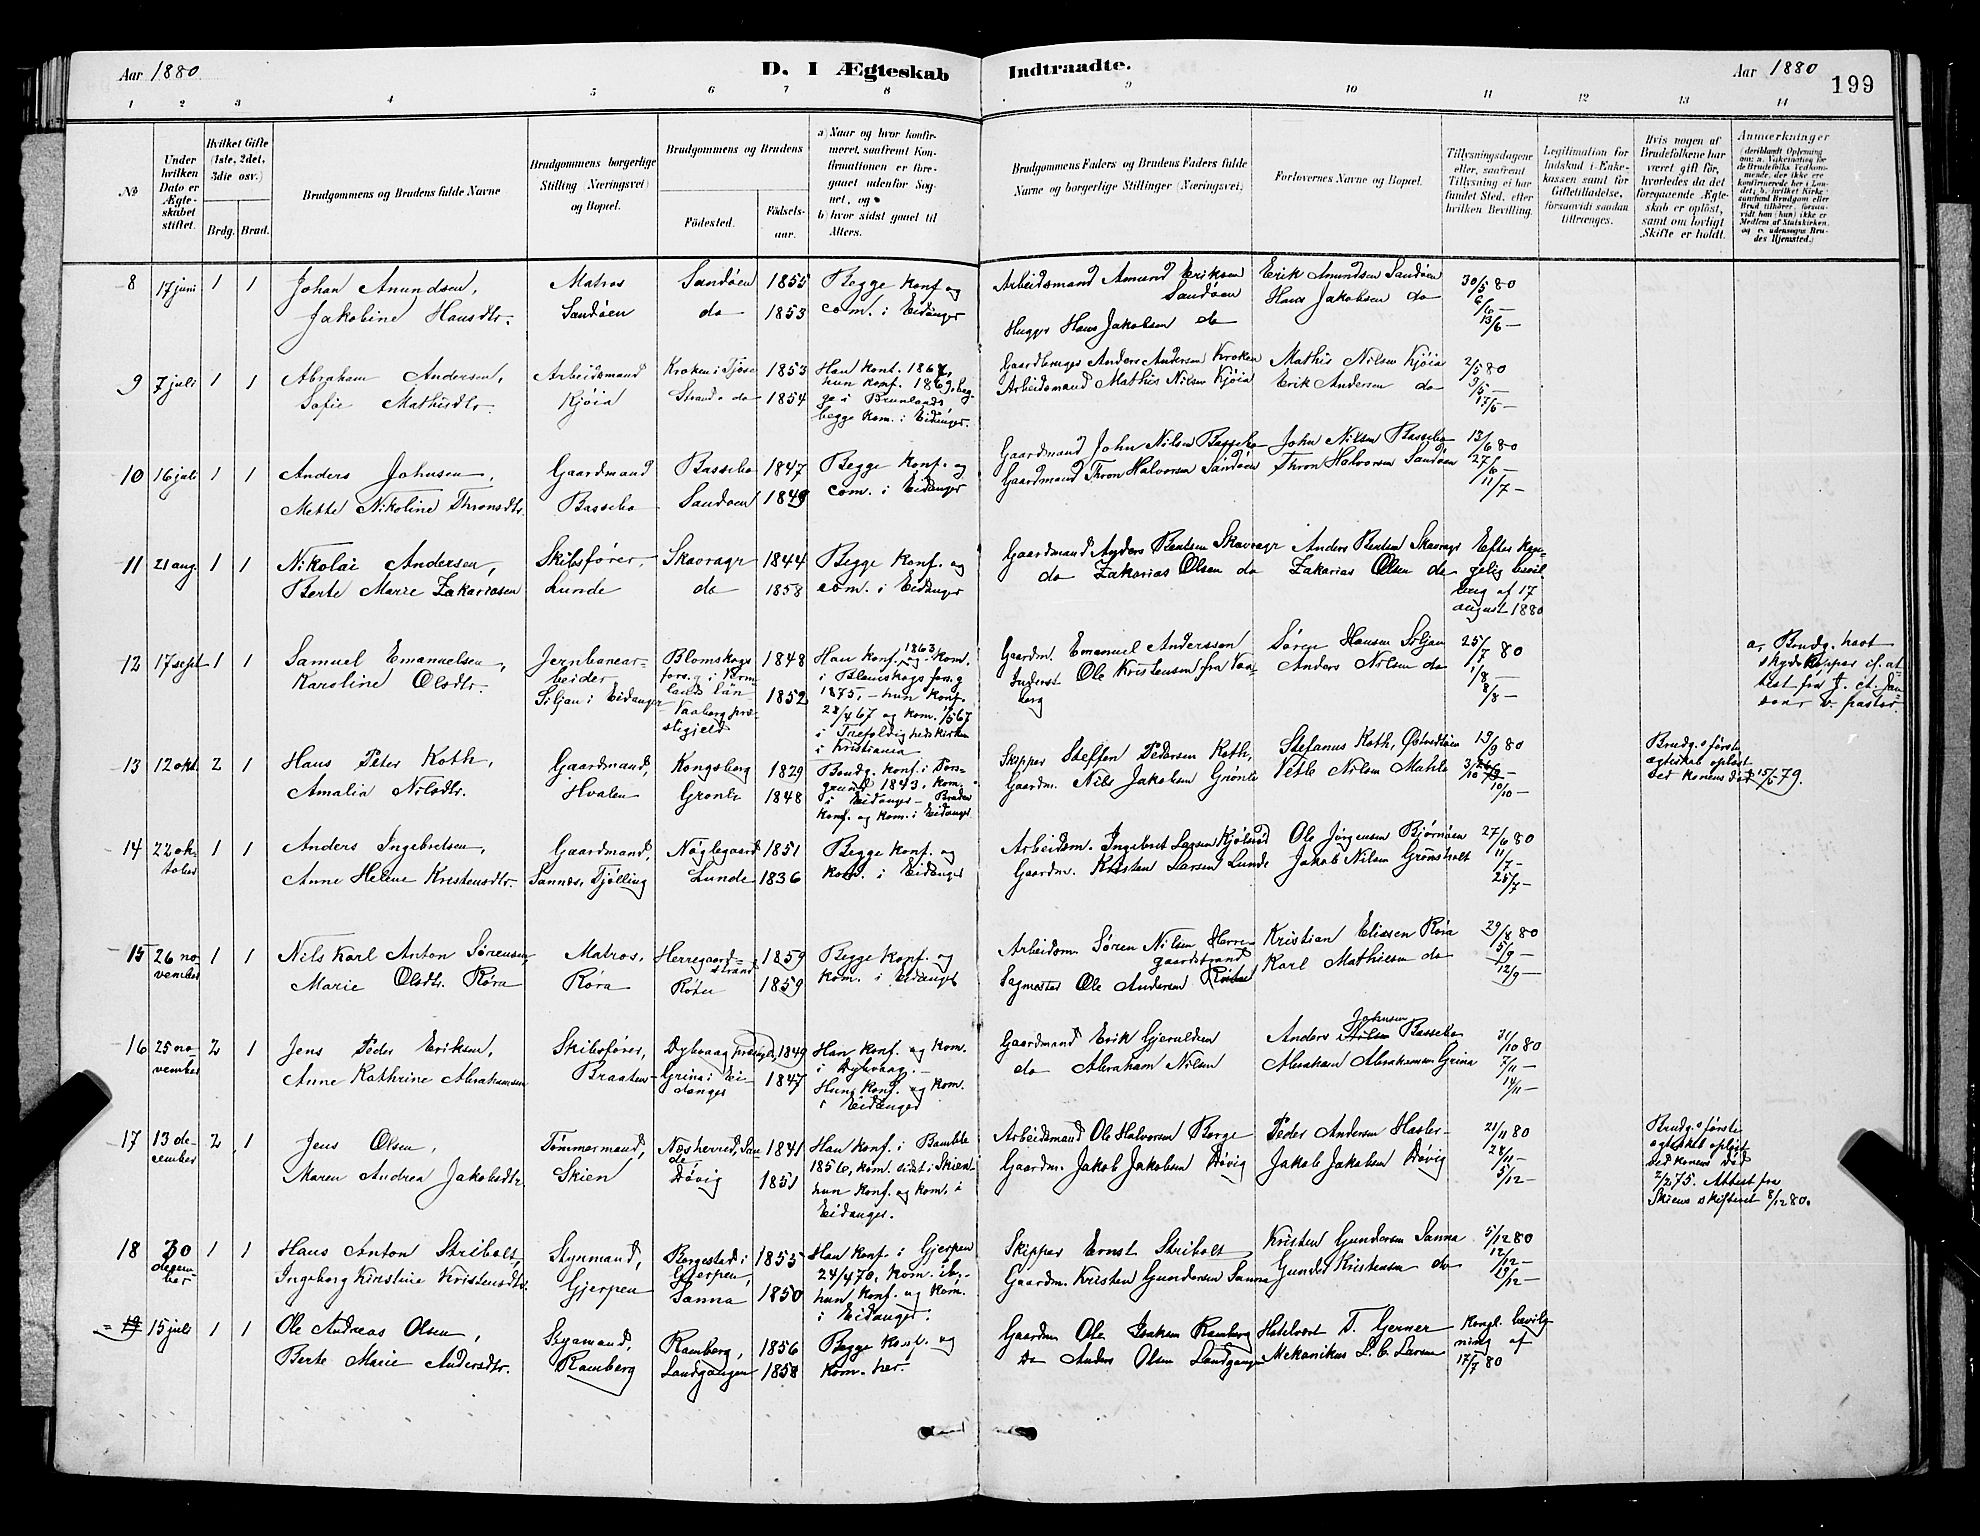 Aar 1880
D. I Ægteskab Indtraadte.
Aar 1880
199
1 2 3 4 5 6 7 8 9 10 11 12 13 14
No
Under hvilken Dato er Ægteskabet stiftet.
Hvilket Gifte (1ste, 2det, 3die osv.)
Brdg. Brud.
Brudgommens og Brudens fulde Navne
Brudgommens borgerlige Stilling (Næringsvei) og Bopæl.
Brudgommens og Brudens
Fødested.
Fødselsaar.
a) Naar og hvor konfirmeret, saafremt Konfirmationen er foregaaet udenfor Sognet, og
b) hvor sidst gaaet til Alters.
Brudgommens Faders og Brudens Faders fulde Navne og borgerlige Stillinger (Næringsvei).
Forlovernes Navne og Bopæl.
Tillysningsdagene eller, saafremt Tillysning ei har fundet Sted, efter hvilken Bevilling.
Legitimation for Indskud i Enkekassen samt for Giftetilladelse, forsaavidt saadan tiltrænges.
Hvis nogen af Brudefolkene har været gift før, hvorledes da det foregaaende Ægteskab er opløst, samt om lovligt Skifte er holdt.
Anmærkninger
(deriblandt Oplysning om: a. Vakcination for de Brudefolks Vedkommende, der ikke ere konfirmerede her i Landet; b. hvilket Kirkesamfund Brudgom eller Brud tilhører, forsaavidt han (hun) ikke er Medlem af Statskirken, og c. udensogns Brudes Hjemsted.)
8 17 juni 1 1 Johan Amundsen, Matros Sandøen 1855 Begge konf. og
Jakobine Hansdtr. Sandøen do 1853 com. i Eidanger
Arbeidsmand Amund Eriksen Sandøen
Hugger Hans Jakobsen do
Erik Amundsen Sandøen
Hans Jakobsen do
30/5 80
6/6 —
13/6 —
9 7 juli 1 1 Abraham Andersen, Arbeidsmand Kroken i Tjøse 1853 Han konf. 1867,
Sofie Mathisdtr. Kjøia Strand do 1854 hun konf. 1869, beg-
ge i Brunlanes
begge kom. i Eidanger.
Gaardbruger Anders Andersen Kroken
Arbeidsmand Mathis Nilsen Kjøia
Mathis Nilsen Kjøia
Erik Andersen do
2/5 80
17/5 —
10 16 juli 1 1 Anders Johnsen, Gaardmand Bassebo 1847 Begge konf. og
Mette Nikoline Thronsdtr. Bassebo Sandøen 1849 com. i Eidanger
Gaardmand John Nilsen Bassebo
Gaardmand Thron Halvorsen Sandøen
John Nilsen Bassebo
Thron Halvorsen Sandøen
13/6 80
27/6 —
11/7 —
11 21 aug. 1 1 Nikolai Andersen, Skibsfører, Skavragr 1844 Begge konf. og
Berte Marie Zakariasen Lunde do 1858 com. i Eidanger
Gaardmand Anders Bentsen Skavragr
do Zakarias Olsen do
Anders Bentsen Skavragr
Zakarias Olsen do
Efter kon-
gelig bevil-
ling af 17
august 1880
12 17 sept 1 1 Samuel Emanuelsen, Jernbanear- Blomskogs 1848 Han konf. 1863 og kom.
Karoline Olsdtr. beider fors. g i Verm- i Blomskogs fors. g
Siljan i Eidanger lands län 1852 1875, — hun konf.
Vaaberg præ- 28/4 67 og kom. 1/5 67
stegjeld i Trefoldighedskirken
i Kristiania
Gaardm. Emanuel Andersson
Inderst Ole Kristensen fra Vaa-
berg
Søren Hansen Siljan
Anders Nilsen do
25/7 80
1/8 —
8/8 —
a, Brudg. havt
skydskopper if. at-
test fra
v. pastor.
13 12 okt. 2 1 Hans Peter Koth, Gaardmand, Kongsberg 1829 Brudg. konf. i Pors-
Amalia Nilsdtr. Hvalen Grønli 1848 grund 1843, kom.
i Eidanger — Bruden
konf. og kom. i Eidanger
Skipper Steffen Pedersen Koth,
Gaardm. Nils Jakobsen Grønli
Stefanus Koth, Østvedtøen
Vetle Nilsen Mahle
19/9 80
10/10 —
Brudg.s første
ægteskab opløst
ved konens død 15/6 79.
14 22 ok- 1 1 Anders Ingebretsen, Gaardmand, Nøglegaard 1851 Begge konf. og
tober Anne Helene Kristensdtr. Sannæs, Tjølling Lunde 1836 kom. i Eidanger
Arbeidsm. Ingebret Larsen Kjølsrød
Gaardm. Kristen Larsen Lunde
Ole Jørgensen Bjørnøen
Jakob Nilsen Grønsholt
27/6 80
11/7 —
25/7 —
15 26 no- 1 1 Nils Karl Anton Sørensen, Matros, Herregaard- 1859 Begge konf. og
vember Marie Olsdtr. Røra Røra strand kom. i Eidanger
1859
Arbeidsm. Søren Nilsen Herre-
gaardstrand
Sagmester Ole Andersen
Kristian Eliasen Røra
Karl Mathiesen do
29/8 80
5/9 —
12/9 —
16 25 no- 2 1 Jens Peder Eriksen, Skibsfører, Dybvaag præstgd. 1849 Han konf. og kom.
vember Anne Kathrine Abrahamsen Braaten Grina i Ei- 1847 i Dybvaag. —
danger Hun konf. og kom.
i Eidanger
Gaardmand Erik Gjeruldsen
do Abraham Nilsen
Anders Johnsen Bassebo
Abraham Abrahamsen Grina
31/10 80
7/11 —
14/11 —
17 13 de- 2 1 Jens Olsen, Tømmermand, Næsherred, San- 1841 Han konf. i Bamble
cember Maren Andrea Jakobsdtr. Skien de 1856, kom. sidst i Skien
Døvig 1851 hun konf. og kom. i
Eidanger.
Arbeidsmand Ole Halvorsen Borge
Gaardm. Jakob Jakobsen Døvig
Peder Andersen Hasler
Jakob Jakobsen Døvig
21/11 80
28/11 —
5/12 —
Brudg.s første
ægteskab opløst
ved konens død
2/2 75. Attest fra
Skiens skifteret 8/12 80.
18 30 1 1 Hans Anton Stribolt, Styrmand, Borgestad i 1855 Han konf. i Gjerpen
decem- Ingeborg Kirstine Kristensdtr. Gjerpen Gjerpen, 24/4 70, kom. ib. —
ber Sanna 1850 hun konf. og kom.
i Eidanger.
Skipper Ernst Stribolt
Gaardm. Kristen Gundersen Sanna
Kristen Gundersen Sanna
Gunder Kristensen do
5/12 80
12/12 —
19/12 —
19 15 juli 1 1 Ole Andreas Olsen, Styrmand, Ramberg, 1856 Begge konf. og
Berte Marie Andersdtr. Ramberg Landgangen 1858 kom. her.
Gaardm. Ole Isaksen Ramberg
Do Anders Olsen Landgangen
Hotelvært T. Gerner
Mekanikus L. C. Larsen
Kongl. bevilg-
ning af
17/7 80